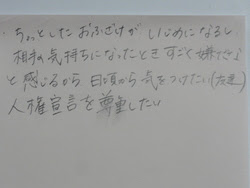 ちょっとしたおふざけがいじめになるし
相手の気持ちになったときすごく嫌だな
と感じるから日頃から気をつけたい(友達)
人権宣言を尊重したい